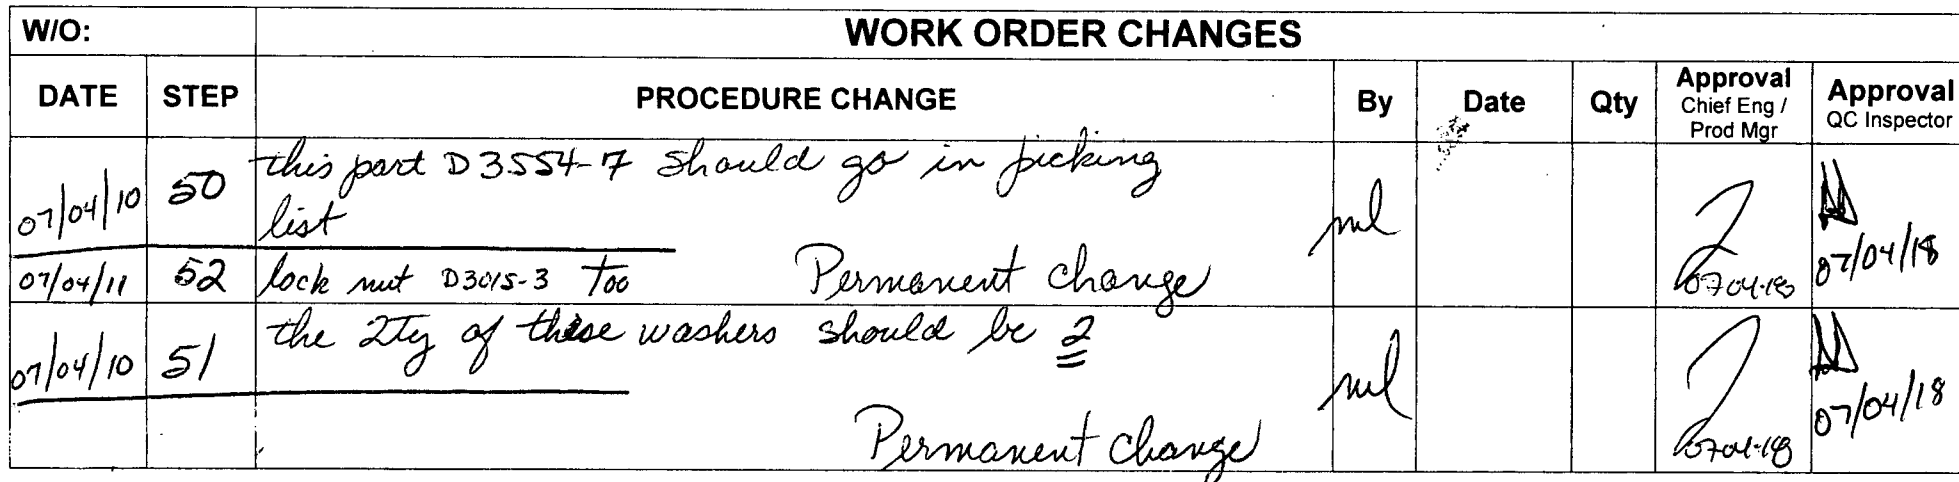 W/O: WORK ORDER CHANGES
DATE STEP PROCEDURE CHANGE By Date Qty Approval Chief Eng / Prod Mgr Approval QC Inspector
07/04/10 50 this part D3554-7 should go in picking
list
ml 07/04/18
07/04/11 52 lock nut D3015-3 Too Permanent change 07-04-18
07/04/10 51 the Qty of these washers should be 2
ml 07/04/18
Permanent change 07-04-18